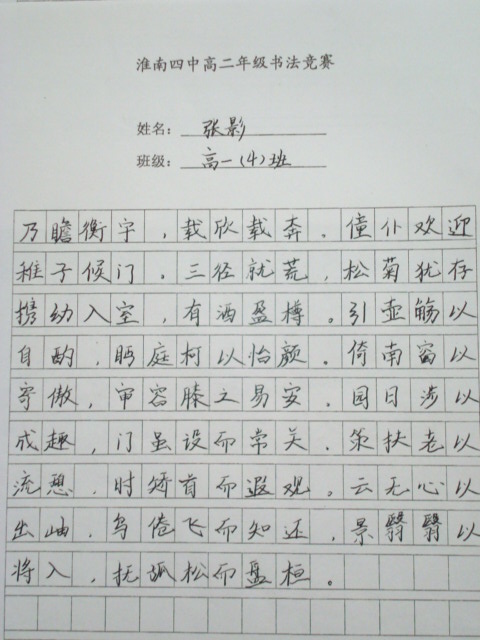 淮南四中高二年级书法竞赛
姓名：张影
班级：高一（4）班
乃瞻衡宇，载欣载奔。僮仆欢迎
稚子候门。三径就荒，松菊犹存
携幼入室，有酒盈樽。引壶觞以
自酌，眄庭柯以怡颜。倚南窗以
寄傲，审容膝之易安。园日涉以
成趣，门虽设而常关。策扶老以
流憩，时矫首而遐观。云无心以
出岫，鸟倦飞而知还，景翳翳以
将入，抚孤松而盘桓。